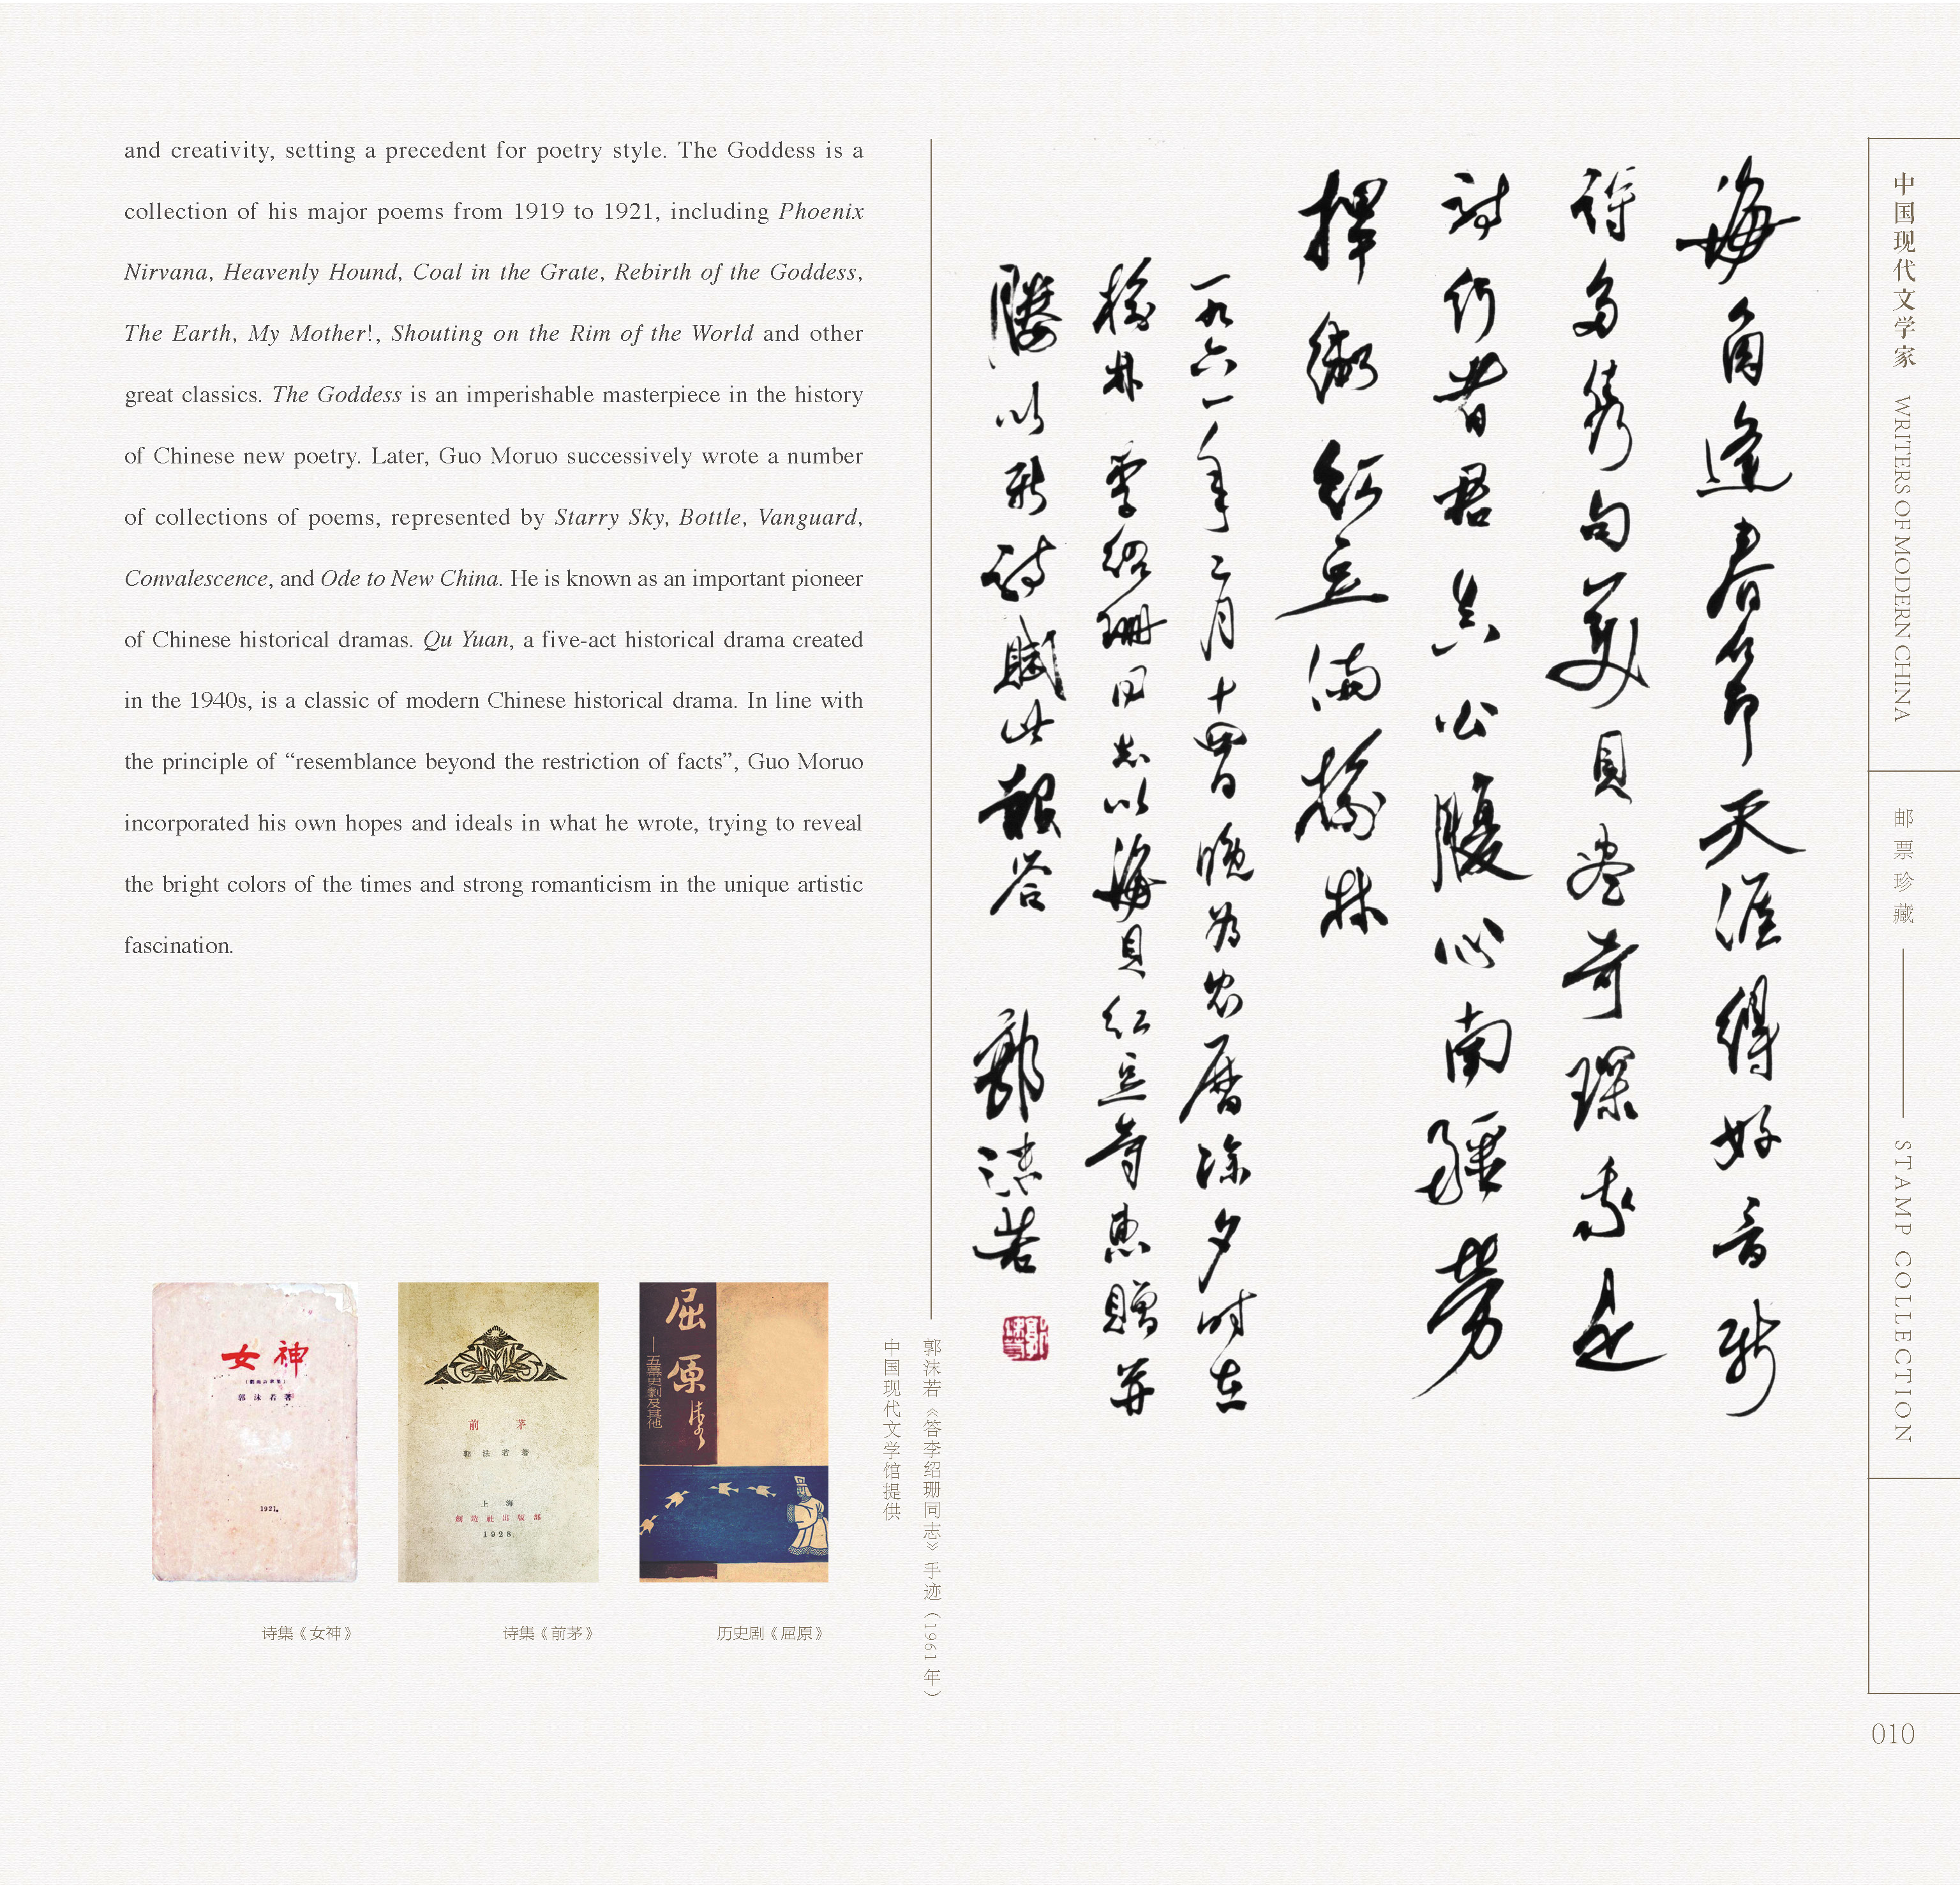 and creativity, setting a precedent for poetry style. The Goddess is a
collection of his major poems from 1919 to 1921, including Phoenix
Nirvana, Heavenly Hound, Coal in the Grate, Rebirth of the Goddess,
The Earth, My Mother!, Shouting on the Rim of the World and other
great classics. The Goddess is an imperishable masterpiece in the history
of Chinese new poetry. Later, Guo Moruo successively wrote a number
of collections of poems, represented by Starry Sky, Bottle, Vanguard,
Convalescence, and Ode to New China. He is known as an important pioneer
of Chinese historical dramas. Qu Yuan, a five-act historical drama created
in the 1940s, is a classic of modern Chinese historical drama. In line with
the principle of “resemblance beyond the restriction of facts”, Guo Moruo
incorporated his own hopes and ideals in what he wrote, trying to reveal
the bright colors of the times and strong romanticism in the unique artistic
fascination.
女神
郭沫若著
1921
前茅
郭沫若著
上海
創造社出版部
1928
屈原
——五幕史劇及其他
诗集《女神》
诗集《前茅》
历史剧《屈原》
海角逢春節天涯得好音新
詩多雋句美貝盡奇琛
詩行者君真公腹心南疆勞
捍衛紅豆滿榆林
一九六一年二月十四日晚為農曆除夕時在
榆林李紹珊同志以海貝紅豆等惠贈并
媵以新詩賦此報答
郭沫若
郭沫若《答李绍珊同志》手迹（1961年）
中国现代文学馆提供
中国现代文学家 WRITERS OF MODERN CHINA
邮票珍藏 —— STAMP COLLECTION
010